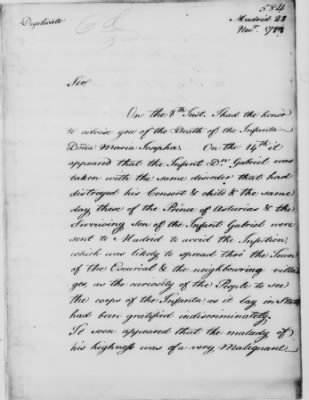 584
Duplicate
Madrid 22
Novr. 1788
Sir
On the 8th Inst. I had the honor
to advise you of the Death of the Infanta
Dña Maria Josepha. On the 14th it
appeared that the Infant Dn. Gabriel was
taken with the same disorder that had
distroyed his Consort & child & the same
day, those of the Prince of Asturias & the
Surviving Son of the Infant Gabriel were
sent to Madrid to avoid the Infection
which was likely to spread thro' the Town
of the Escurial & the neighbouring villa
ges as the curiosity of the People to see
the corps of the Infanta as it lay in State
had been gratified indiscriminately.
It soon appeared that the malady of
his highness was of a very Malignant